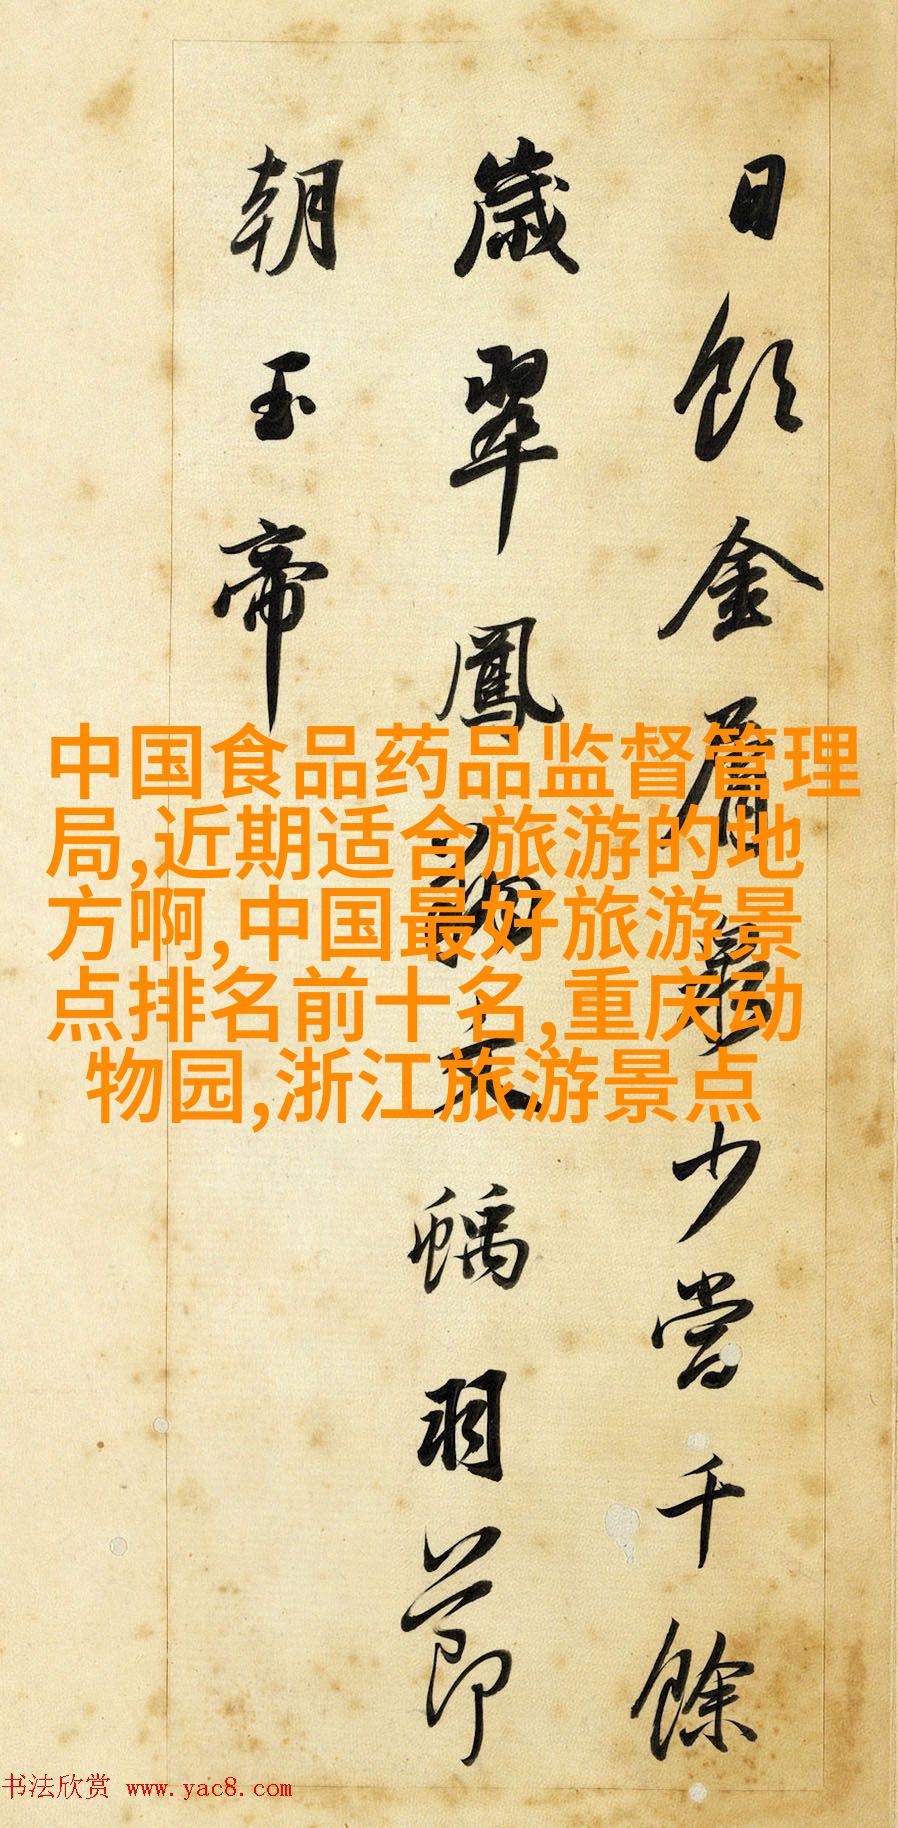 日飲金屑少當千餘
歲翠鳳文螭羽節
朝玉帝
中国食品药品监督管理
局,近期适合旅游的地
方啊,中国最好旅游景
点排名前十名,重庆动
物园,浙江旅游景点
书法欣赏 www.yac8.com